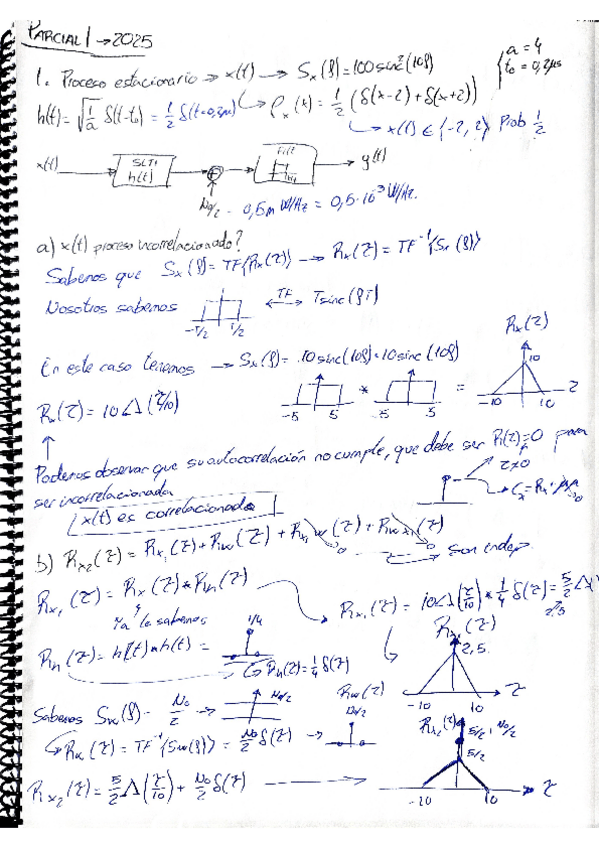 PARCIAL 1 → 2025
a = 4
t₀ = 0,2μs
1. Proceso estacionario → x(t) → Sx(f) = 100sinc²(10f)
h(t) = √(1/a) δ(t-t₀) = 1/2 δ(t-0,2μ) → ρx(x) = 1/2 (δ(x-2) + δ(x+2))
→ x(t) ∈ {-2, 2} Prob 1/2
x(t) → SLTI h(t) → + → Filt → y(t)
N₀/2 - 0,5m W/Hz = 0,5·10⁻³ W/Hz.
a) x(t) proceso incorrelacionado?
Sabemos que Sx(f) = TF{Rx(τ)} → Rx(τ) = TF⁻¹{Sx(f)}
Nosotros sabemos -T/2 1/2 ←TF→ Tsinc(fT)
En este caso tenemos → Sx(f) = 10sinc(10f)·10sinc(10f)
-5 5 * -5 5 =
Rx(τ)
10
-10 10 τ
Rx(τ) = 10Λ(τ/10)
Podemos observar que su autocorrelación no cumple, que debe ser R(τ)=0 para
τ≠0
ser incorrelacionada
x(t) es correlacionado
b) Rx₂(τ) = Rx₁(τ) + Rw(τ) + Rx₁w(τ) + Rwx₁(τ)
0 0 → Son indep.
Rx₁(τ) = Rx(τ) * Rh(τ)
Ya la sabemos
→ Rx₁(τ) = 10Λ(τ/10) * 1/4 δ(τ) = 5/2 Λ
2,5
Rh(τ) = h(τ) * h(τ) =
1/4
→ Rh(τ) = 1/4 δ(τ)
Rx₁(τ)
2,5
-10 10 τ
Sabemos Sw(f) - N₀/2 → N₀/2
Rw(τ)
N₀/2
→ Rw(τ) = TF⁻¹{Sw(f)} = N₀/2 δ(τ) →
Rx₂(τ) = 5/2 Λ(τ/10) + N₀/2 δ(τ) →
Rx₂(τ)
5/2 + N₀/2
5/2
-10 10 τ